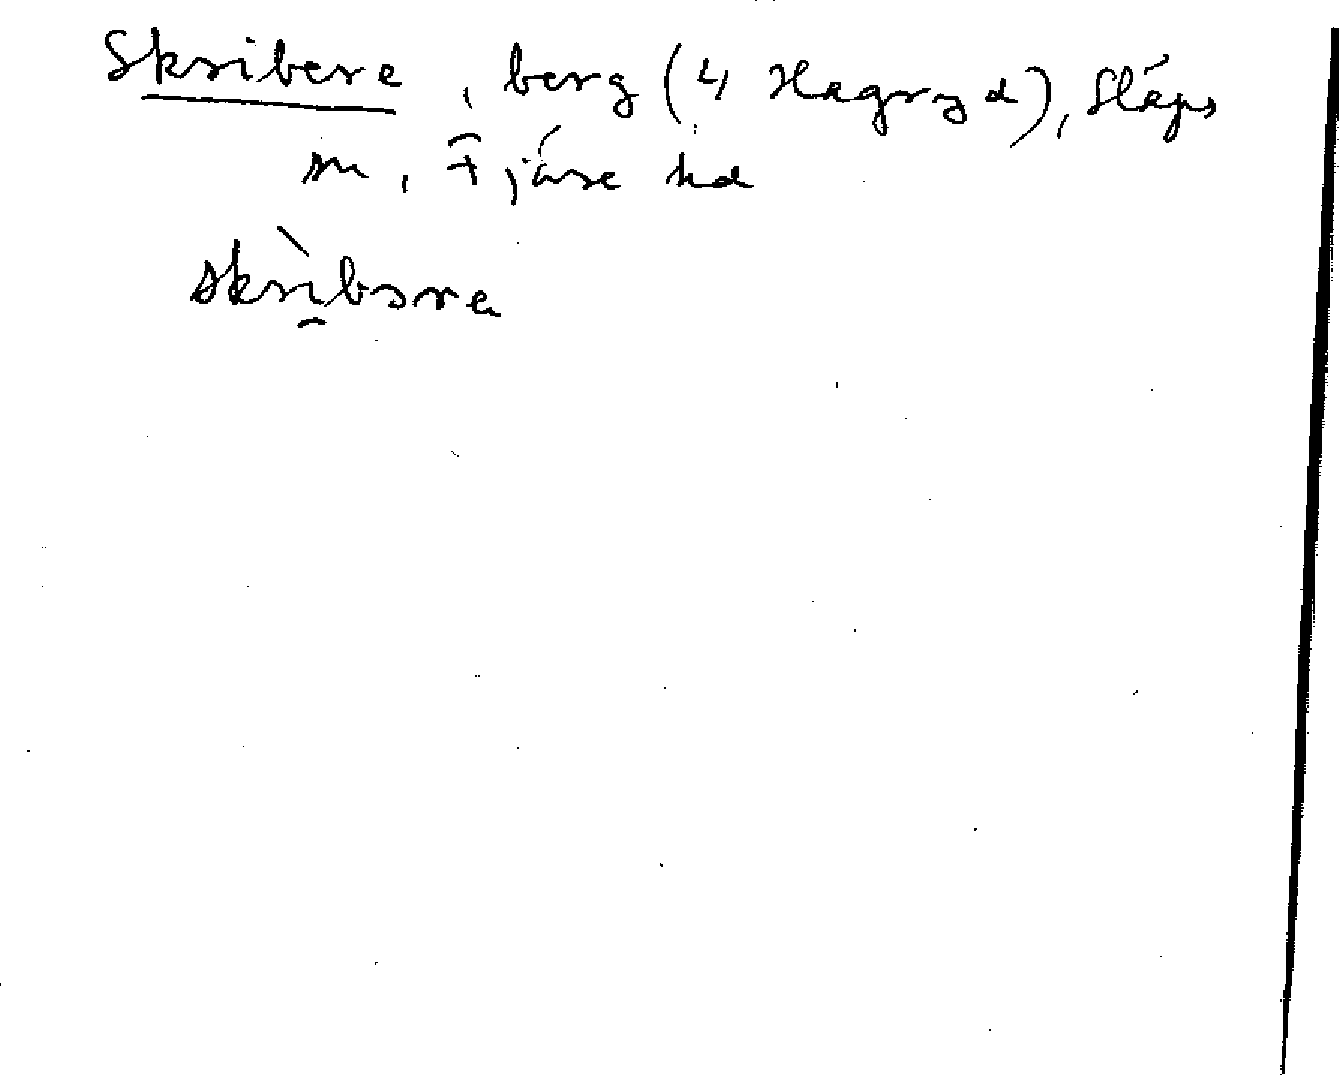 Skribere, berg (4 Hagryd), Släps
sn, Fjäre hd
skrìbsra